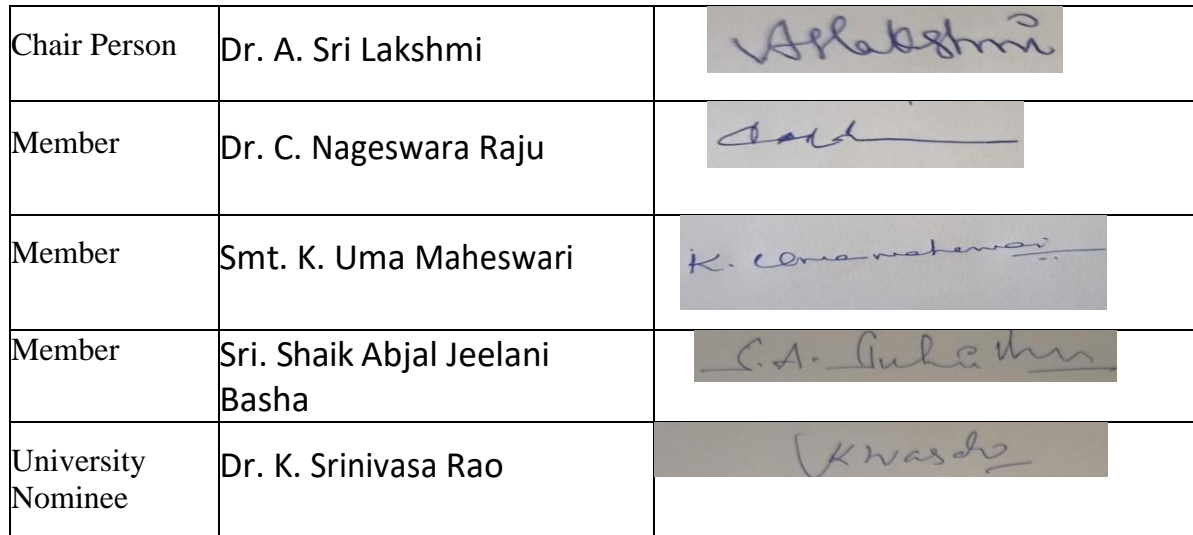 Chair Person Dr. A. Sri Lakshmi ASLakshmi
Member Dr. C. Nageswara Raju
Member Smt. K. Uma Maheswari K. Umamaheswari
Member Sri. Shaik Abjal Jeelani
Basha S.A.
University
Nominee Dr. K. Srinivasa Rao